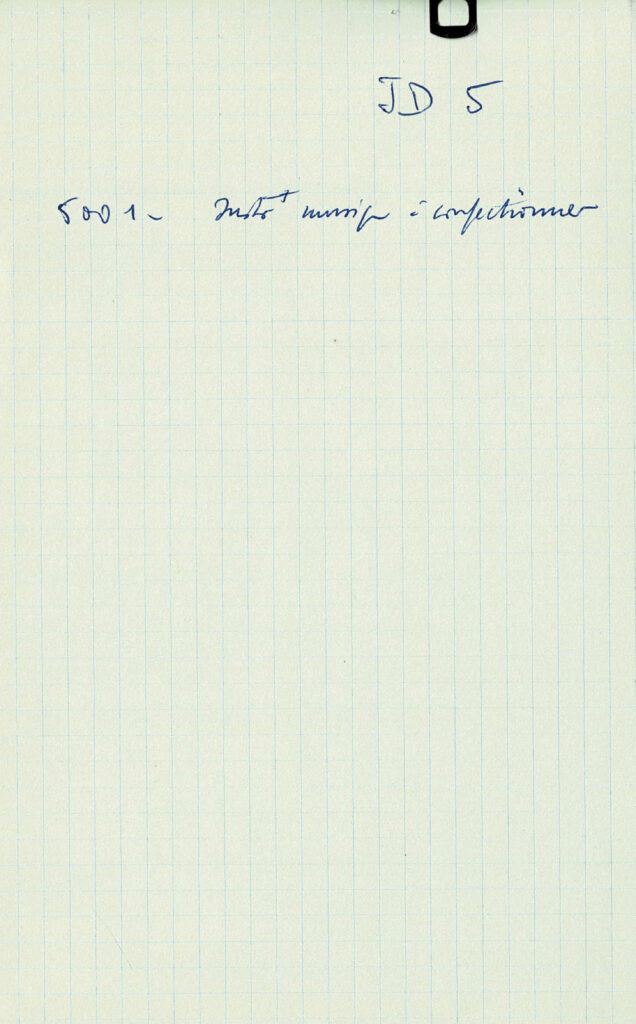 JD 5
5001- Instrt musiq à confectionner